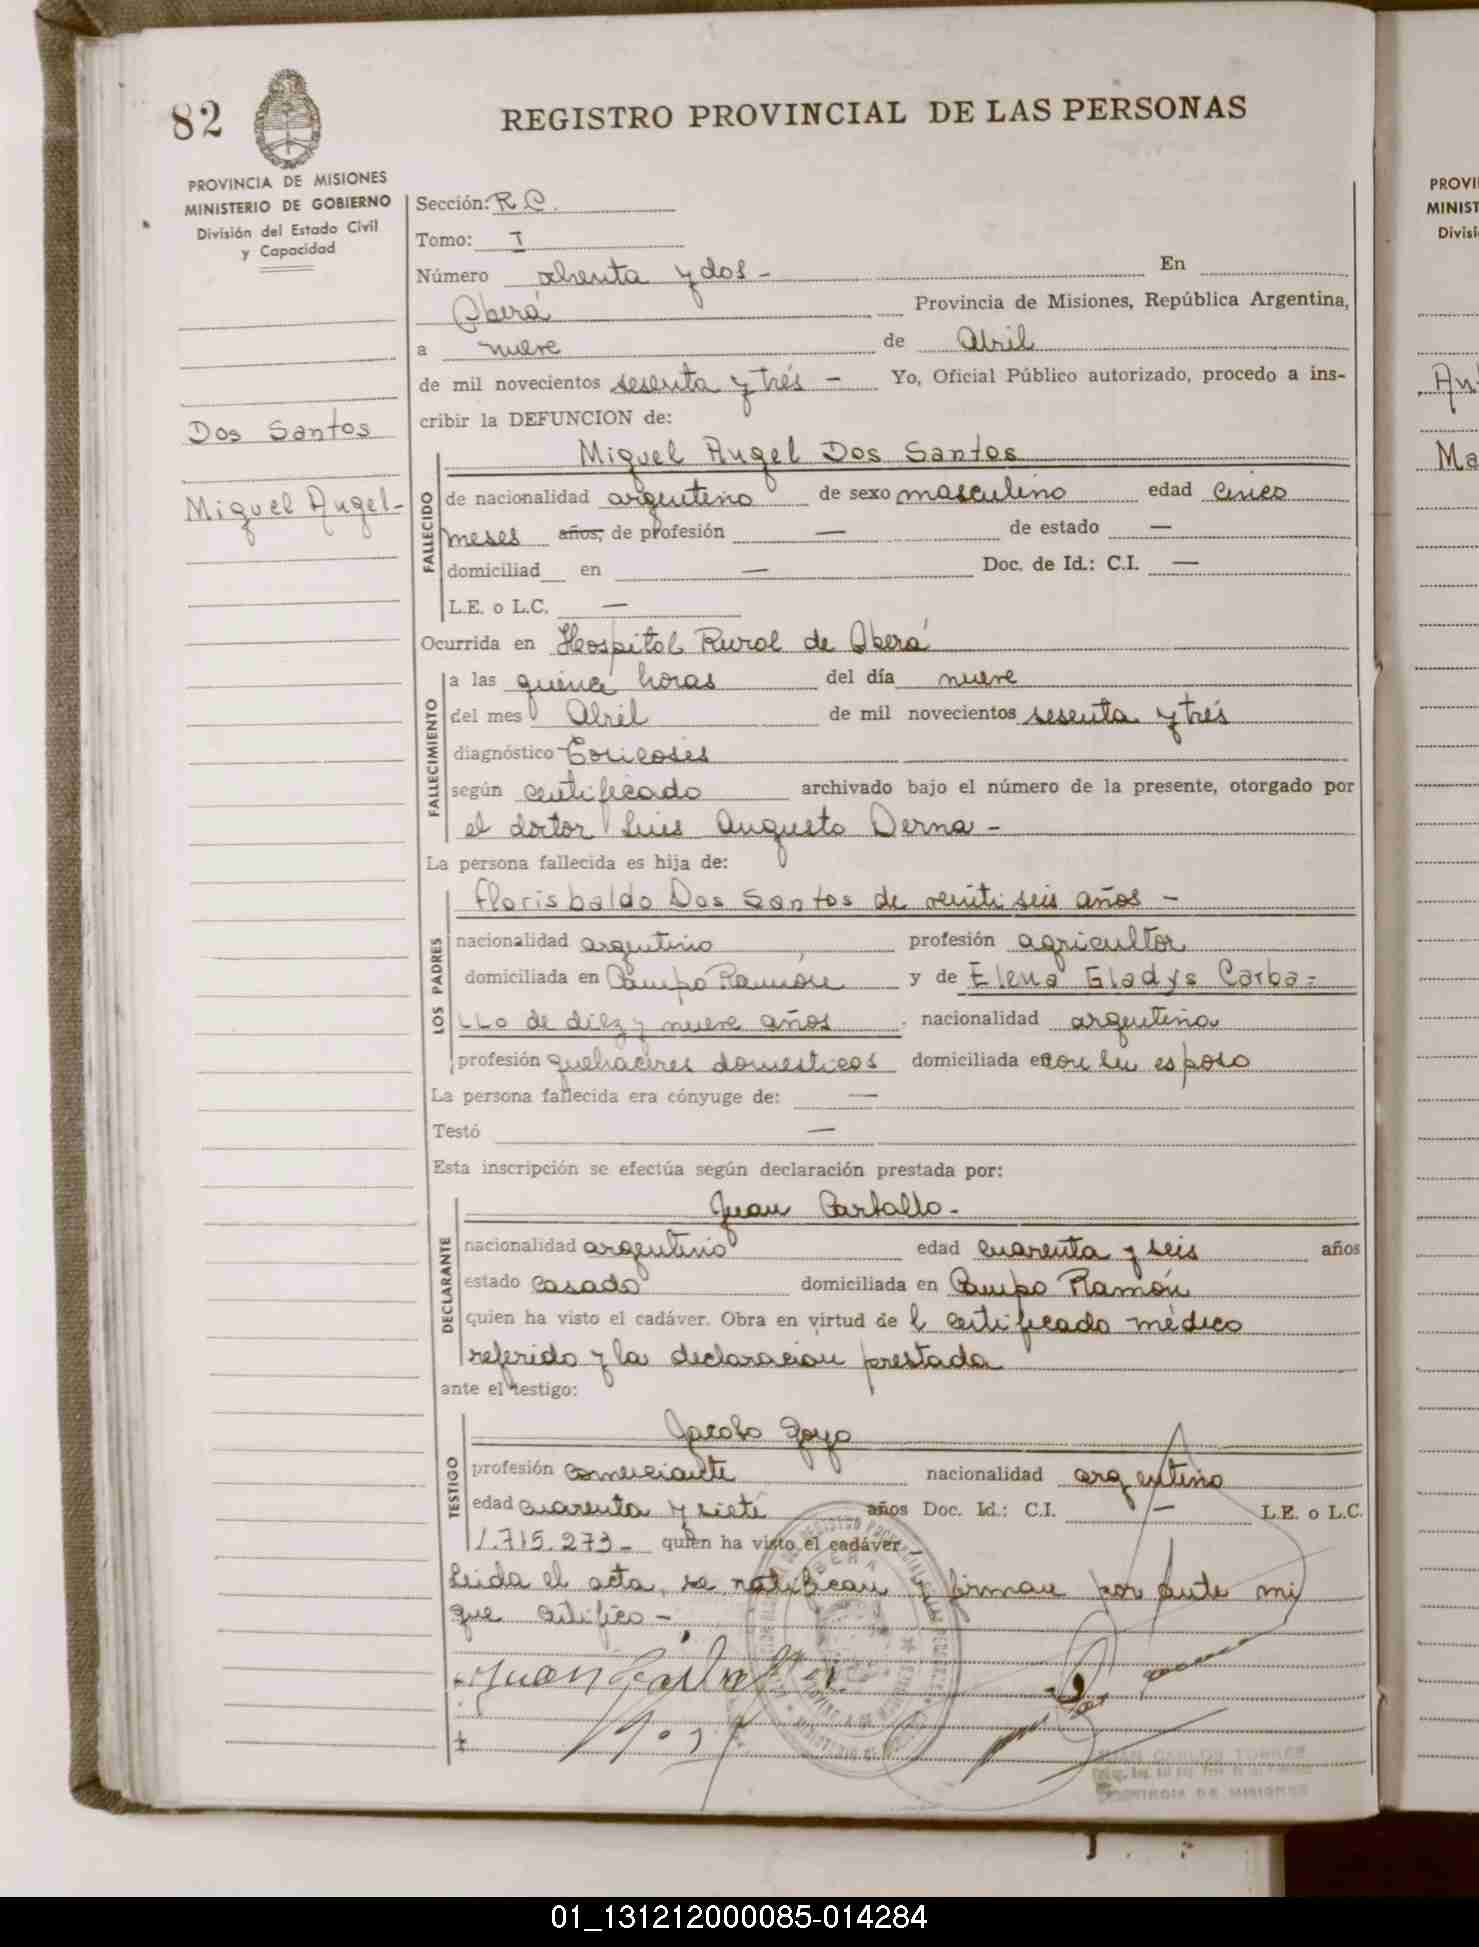 82
REGISTRO PROVINCIAL DE LAS PERSONAS
PROVINCIA DE MISIONES
MINISTERIO DE GOBIERNO
División del Estado Civil
y Capacidad
Dos Santos
Miguel Angel-
Sección: R.C.
Tomo: I
Número ochenta y dos - En
Oberá Provincia de Misiones, República Argentina,
a nueve de Abril
de mil novecientos sesenta y trés - Yo, Oficial Público autorizado, procedo a ins-
cribir la DEFUNCION de:
Miguel Angel Dos Santos
FALLECIDO
de nacionalidad argentino de sexo masculino edad cinco
meses años, de profesión — de estado —
domiciliad en — Doc. de Id.: C.I. —
L.E. o L.C. —
Ocurrida en Hospital Rural de Oberá
FALLECIMIENTO
a las quince horas del día nueve
del mes Abril de mil novecientos sesenta y trés
diagnóstico
según certificado archivado bajo el número de la presente, otorgado por
el doctor Luis Augusto Derna -
La persona fallecida es hija de:
LOS PADRES
Florisbaldo Dos Santos de veinti seis años -
nacionalidad argentino profesión agricultor
domiciliada en Campo Ramón y de Elena Gladys Carba=
LLo de diez y nueve años . nacionalidad argentina
profesión quehaceres domesticos domiciliada en con su esposo
La persona fallecida era cónyuge de: —
Testó —
Esta inscripción se efectúa según declaración prestada por:
Juan Carballo-
DECLARANTE
nacionalidad argentino edad cuarenta y seis años
estado casado domiciliada en Campo Ramón
quien ha visto el cadáver. Obra en virtud de l certificado médico
referido y la declaracion prestada
ante el testigo:
TESTIGO
Jacobo Goyo
profesión comerciante nacionalidad argentino
edad cuarenta y siete años Doc. Id.: C.I. — L.E. o L.C.
1.715.273- quien ha visto el cadáver.
Leida el acta, se ratifican y firman por ante mi
que certifico -
Juan Carballo
JUAN CARLOS TORRES
PROVINCIA DE MISIONES
PROVI
MINIST
Divisi
An
Ma
01_131212000085-014284